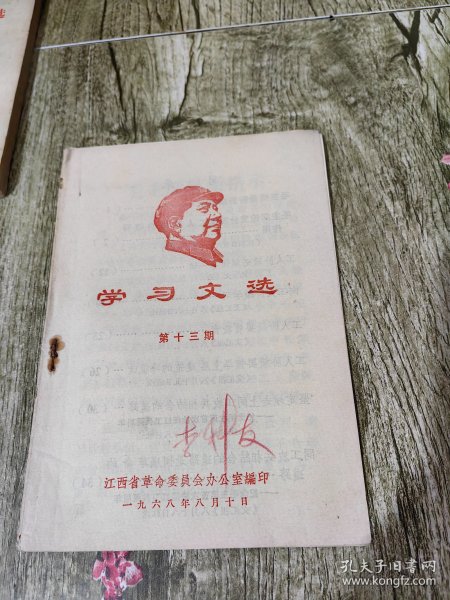 学习文选
第十三期
江西省革命委员会办公室编印
一九六八年八月十日
孔夫子旧书网
www.kongfz.com